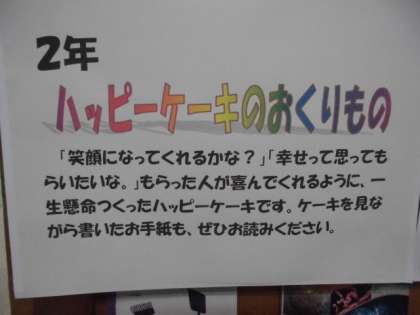 2年
ハッピーケーキのおくりもの
「笑顔になってくれるかな？」「幸せって思っても
らいたいな。」もらった人が喜んでくれるように、一
生懸命つくったハッピーケーキです。ケーキを見な
がら書いたお手紙も、ぜひお読みください。